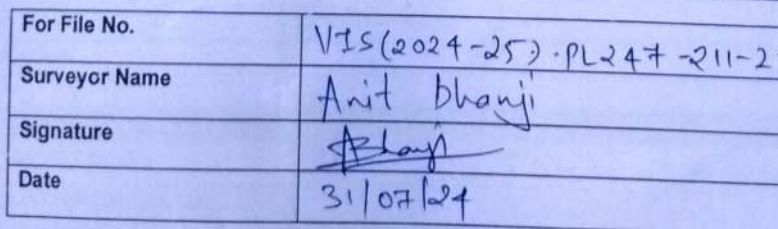 For File No. VIS(2024-25)-PL247-211-2
Surveyor Name Anit Bhanji
Signature ABhanji
Date 31/07/24